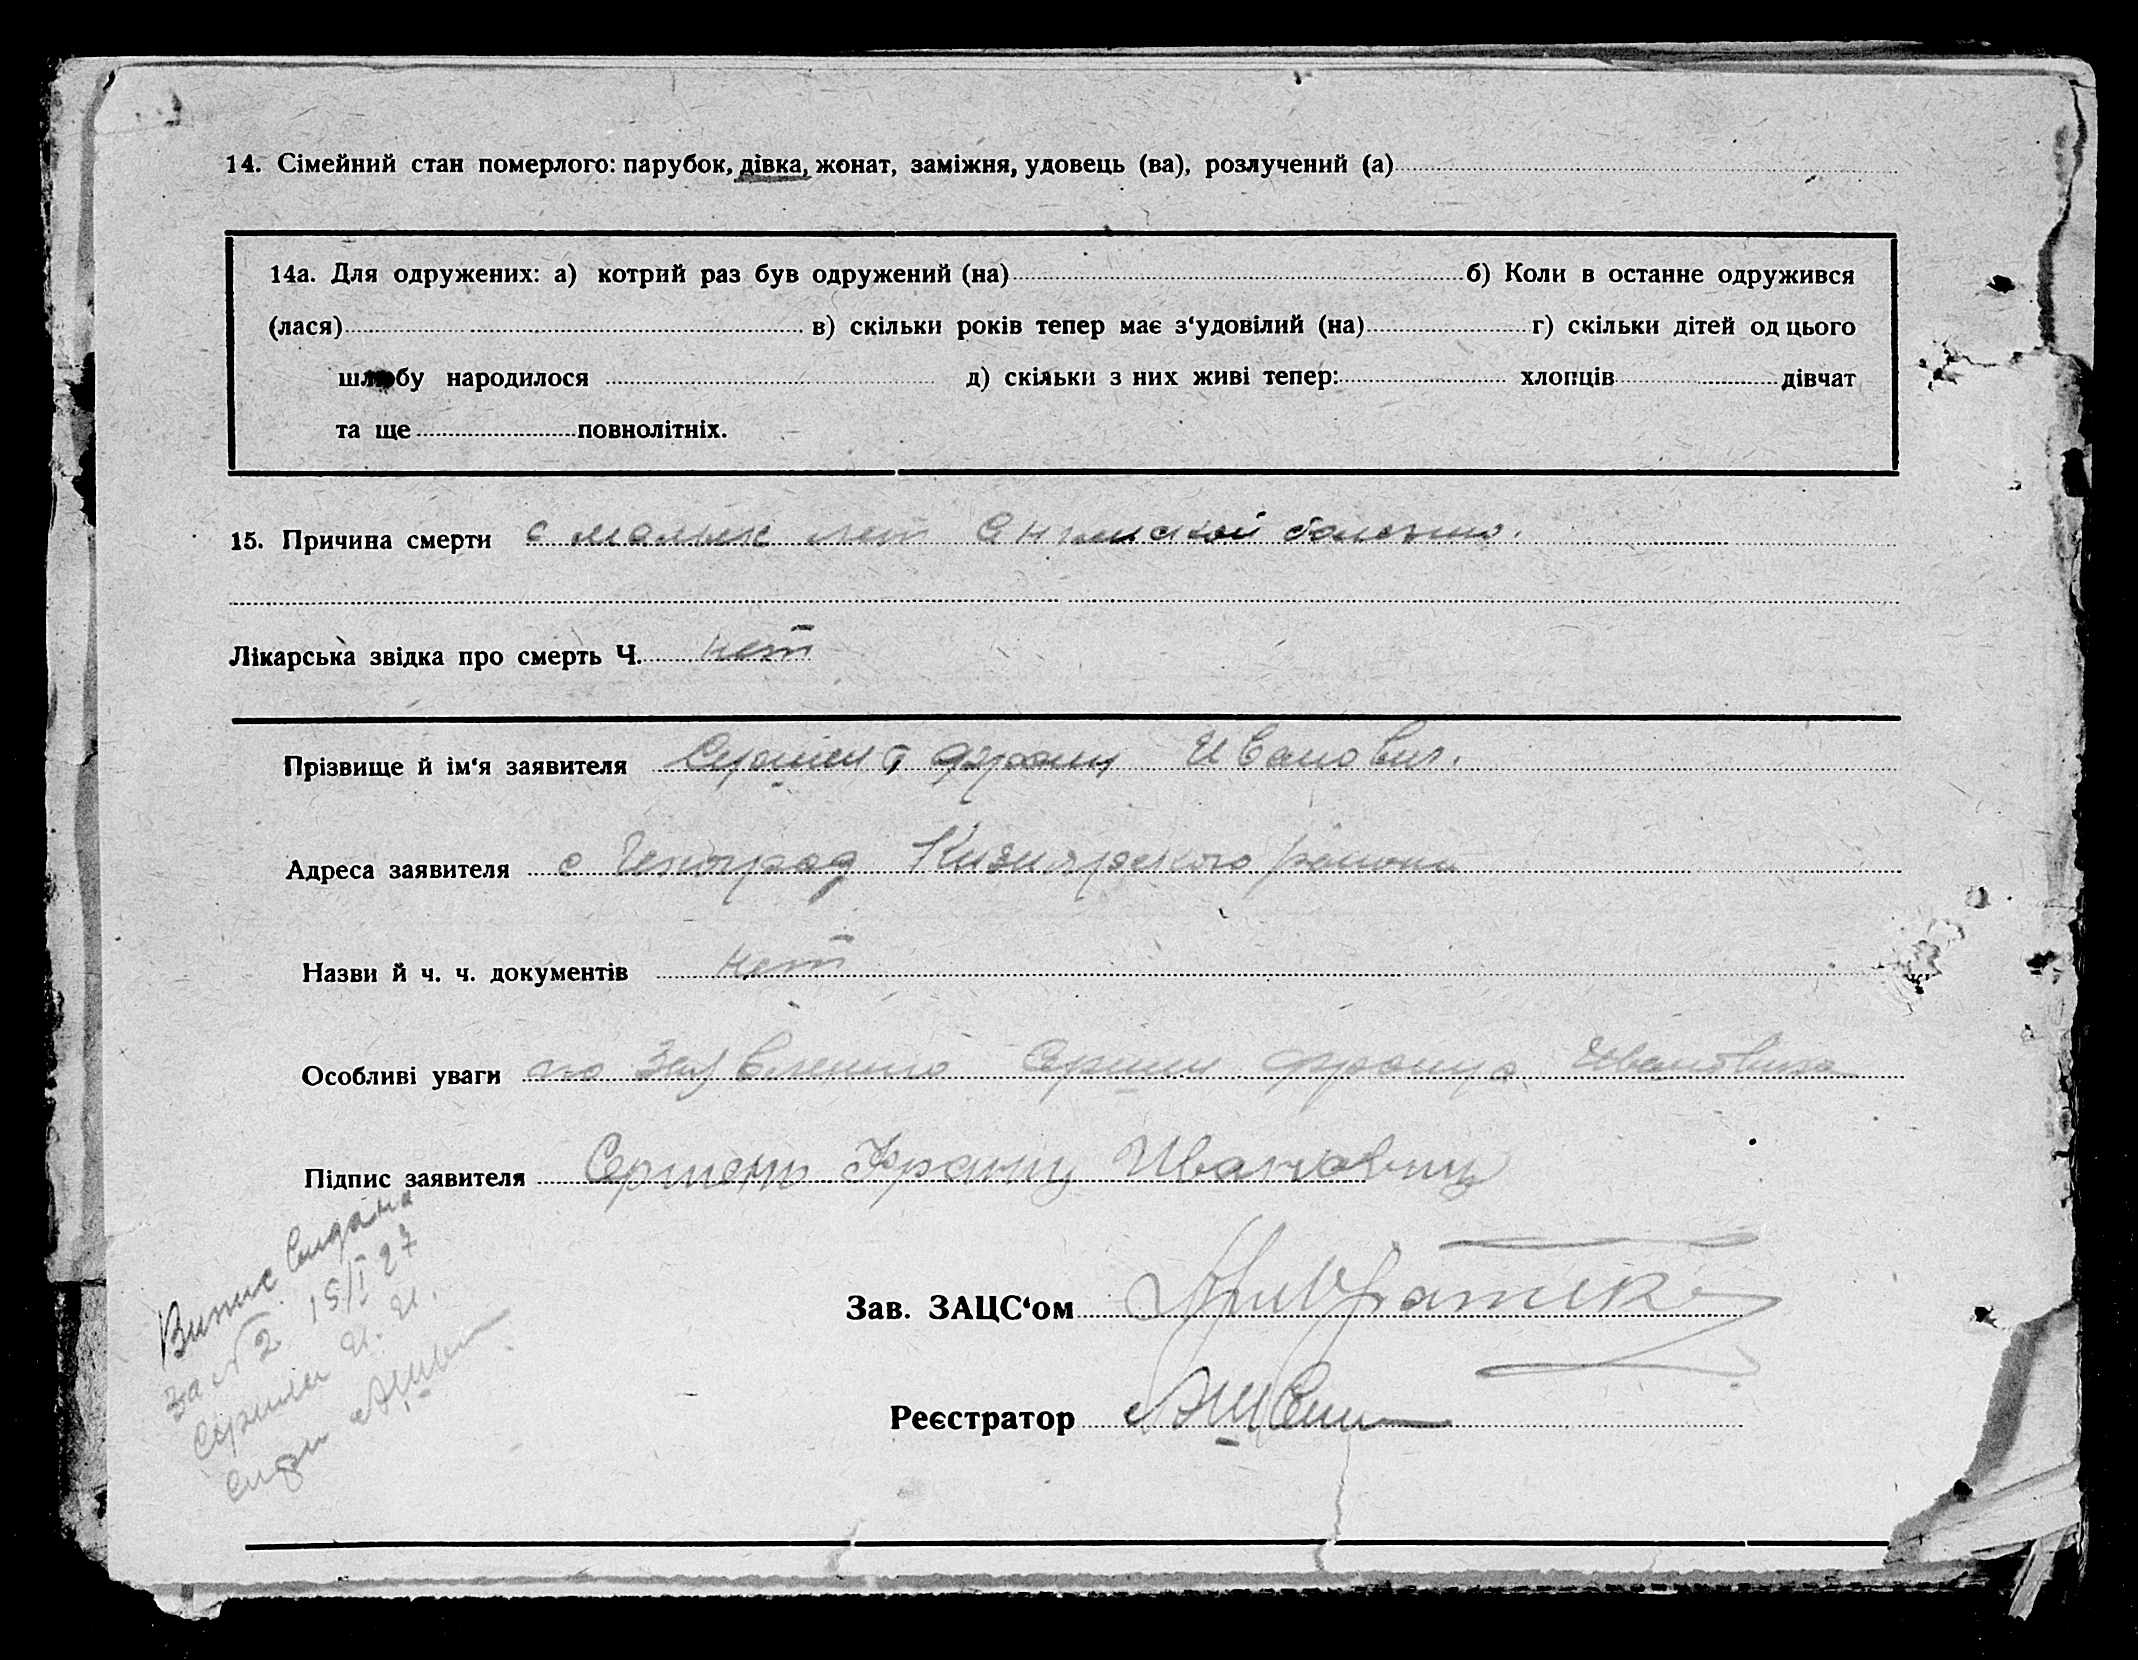 14. Сімейний стан померлого: парубок, дівка, жонат, заміжня, удовець (ва), розлучений (а)
14а. Для одружених: а) котрий раз був одружений (на) б) Коли в останнє одружився
(лася) в) скільки років тепер має з‘удовілий (на) г) скільки дітей од цього
шлюбу народилося д) скільки з них живі тепер: хлопців дівчат
та ще повнолітніх.
15. Причина смерти с малых лет Англиской болезню.
Лікарська звідка про смерть Ч. нет
Прізвище й ім‘я заявителя Франц Иванович.
Адреса заявителя с Гейдрад Кизиярского района
Назви й ч. ч. документів нет
Особливі уваги по Заявлению Франца Ивановича
Підпис заявителя Франц Ивановиц
Випис
за № 2 15/I 27
И. И.
Зав. ЗАЦС‘ом
Реєстратор